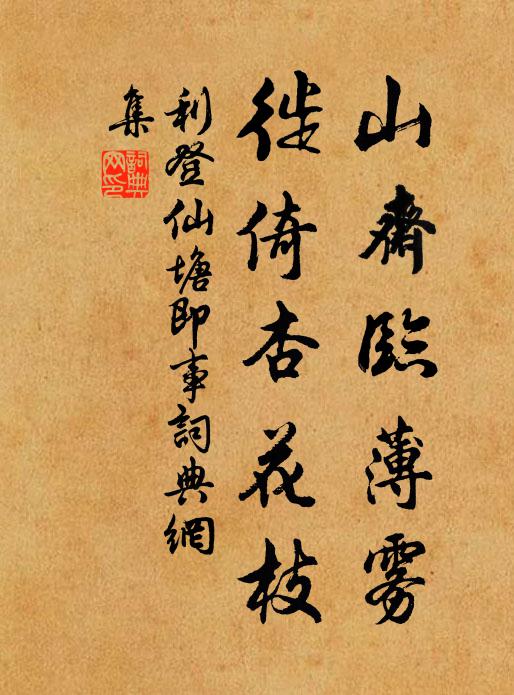 山齋臨薄霧
徙倚杏花枝
利登仙塘即事詞典網
集
詞典
网印